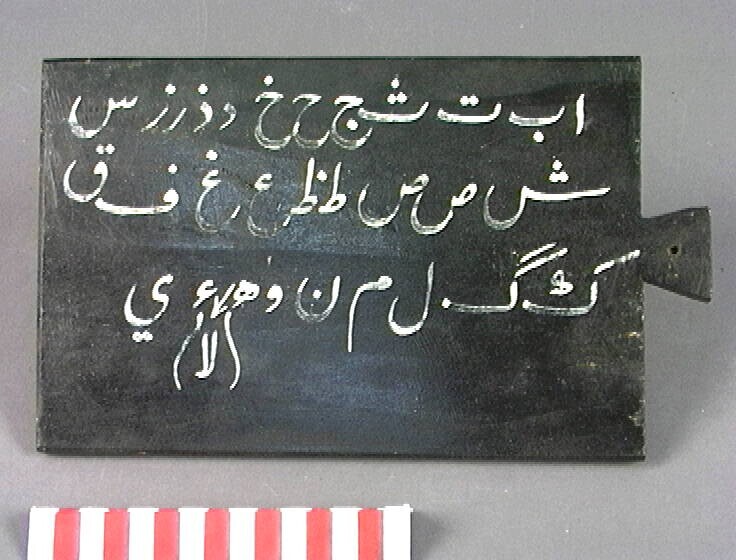 ا ب ت ث ج ح خ د ذ ر ز س
ش ص ض ط ظ ع غ ف ق
ک گ ل م ن و ه ء ي
(لا)